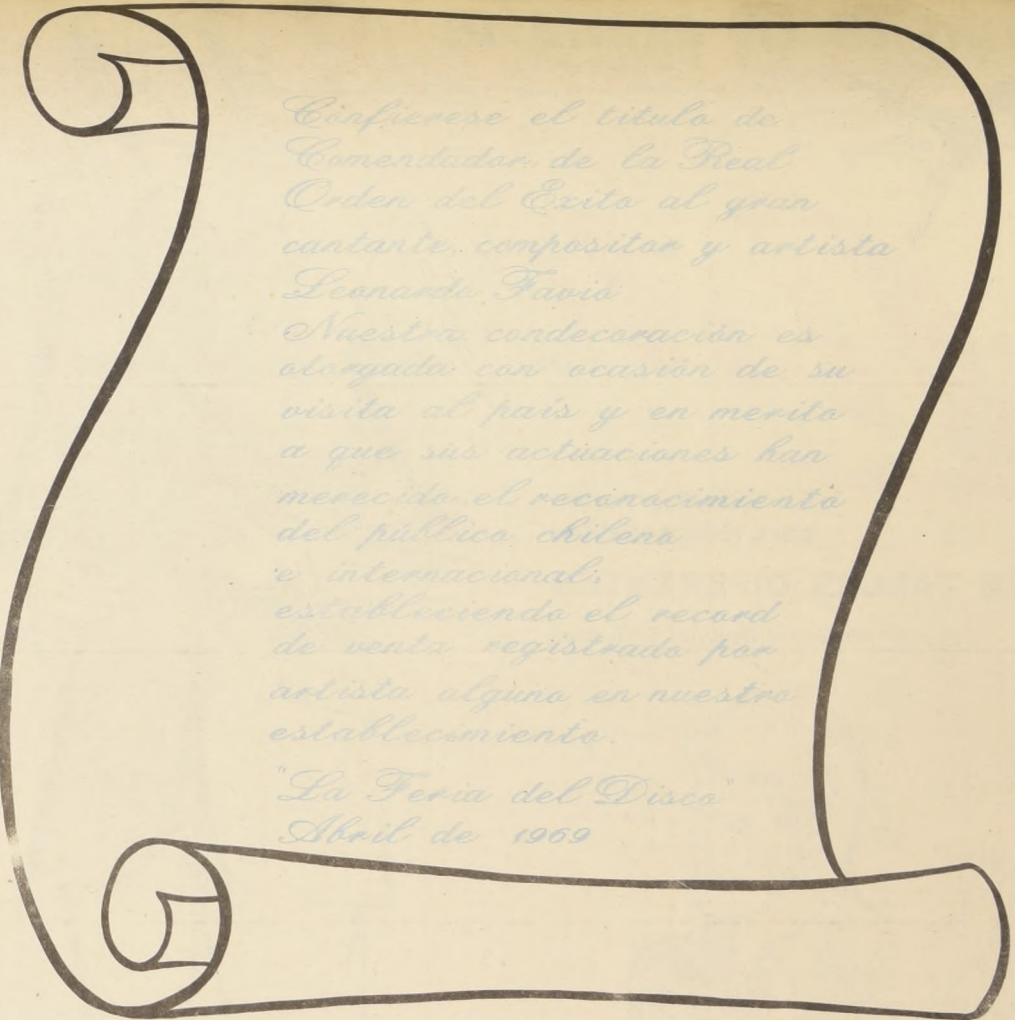 Confierese el titulo de
Comendador de la Real
Orden del Exito al gran
cantante, compositor y artista
Leonardo Favio
Nuestra condecoración es
otorgada con ocasión de su
visita al país y en merito
a que sus actuaciones han
merecido el reconocimiento
del público chileno
e internacional,
estableciendo el record
de venta registrado por
artista alguno en nuestro
establecimiento.
"La Feria del Disco"
Abril de 1969